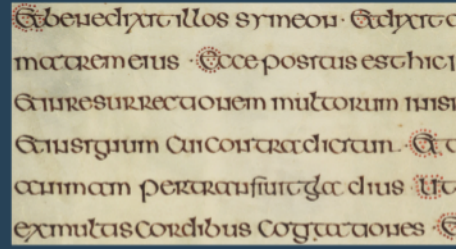 Et benedixit illos symeon · Et dixit
matrem eius · Ecce positus est hic i
Et in resurrectionem multorum in is
Et in signum Cui contradicetur · Et
animam pertransiuit gla dius Ut
ex multis cordibus Cogitationes ·